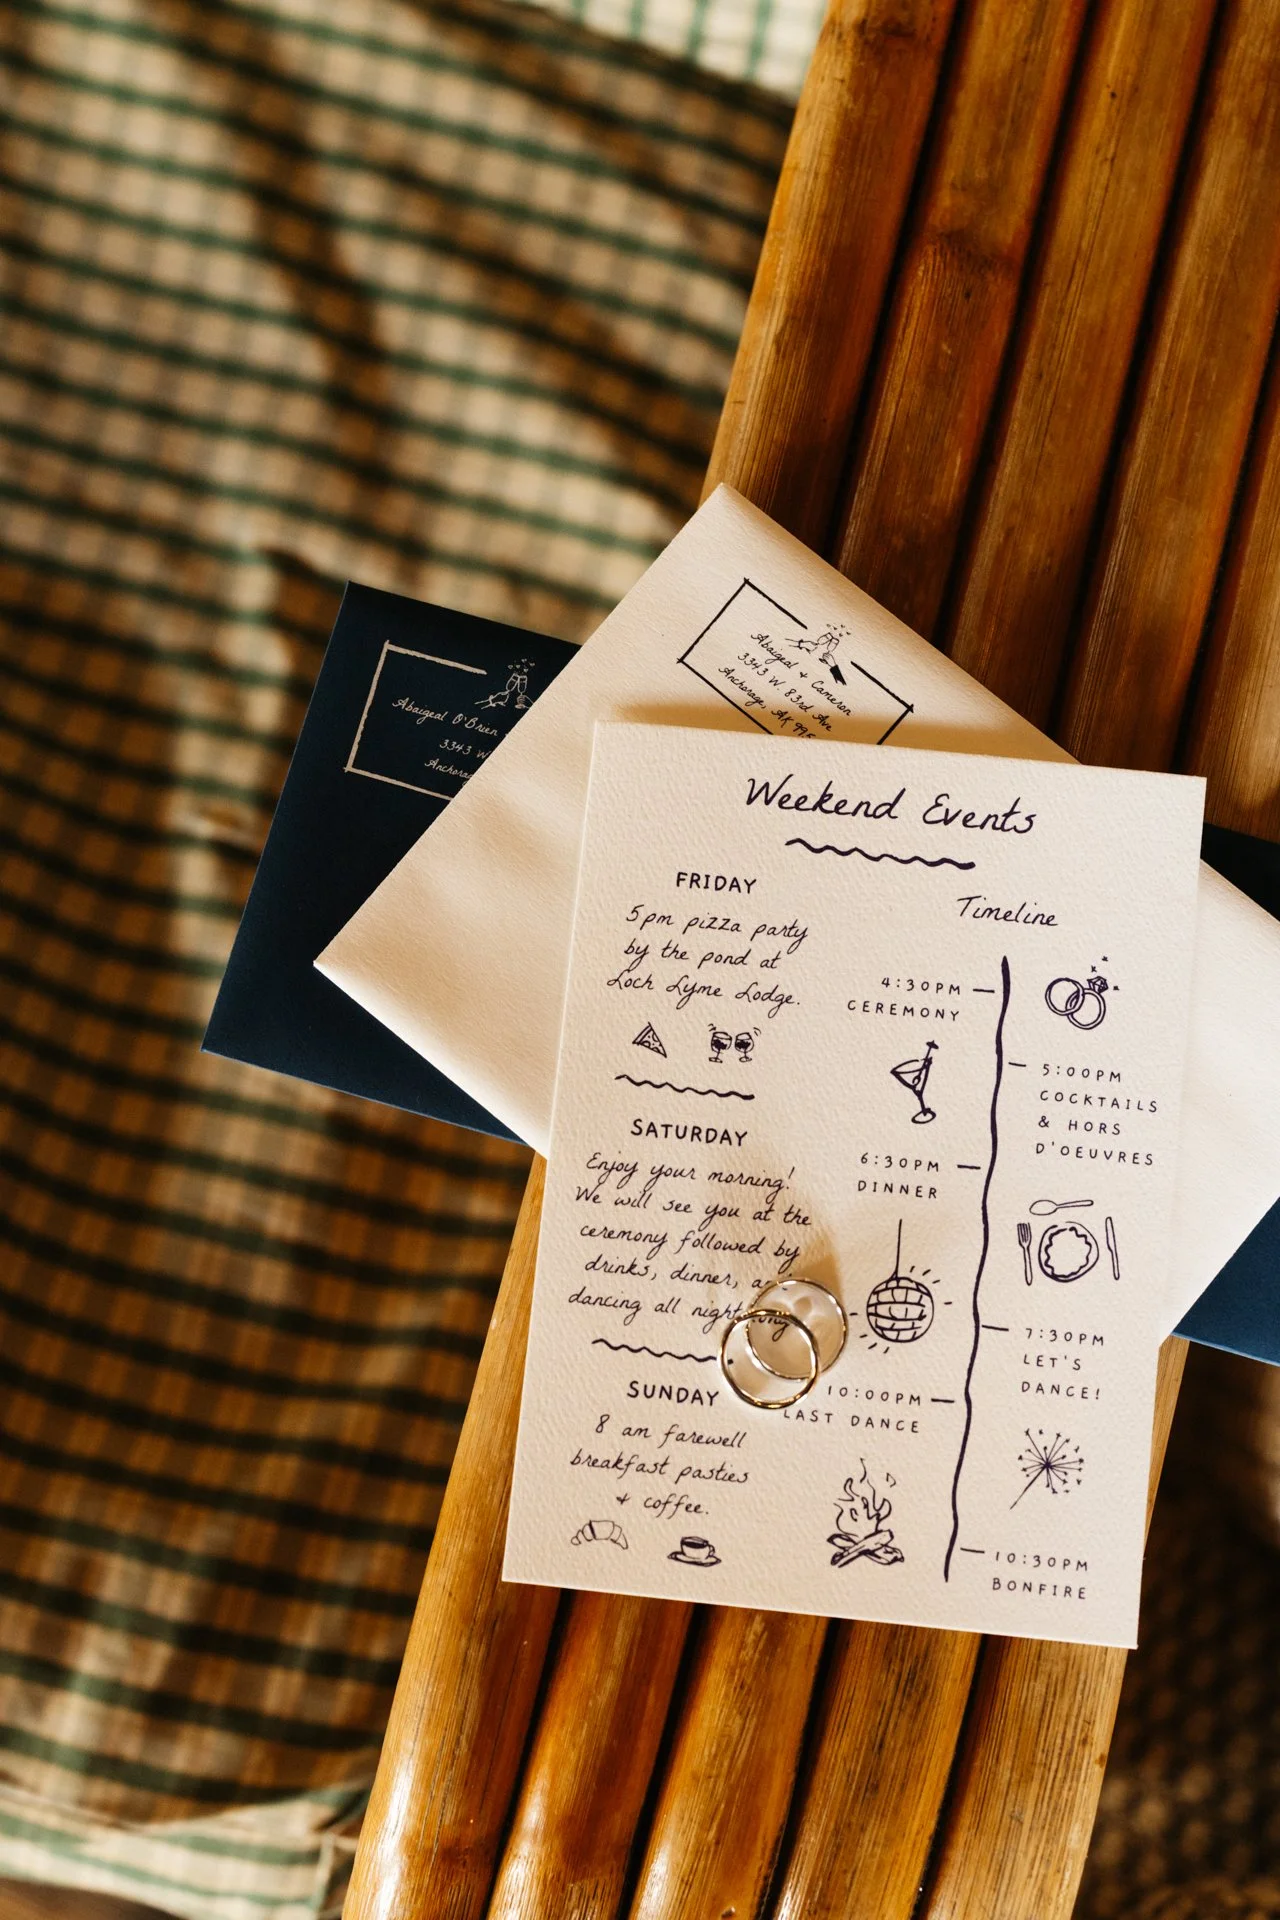 Abaigeal O'Brien
3343 W
Anchorag
Abaigeal + Cameron
3343 W. 83rd Ave
Anchorage, AK 995
Weekend Events
FRIDAY
5pm pizza party
by the pond at
Loch Lyme Lodge.
SATURDAY
Enjoy your morning!
We will see you at the
ceremony followed by
drinks, dinner,
dancing all night
SUNDAY
8 am farewell
breakfast pasties
+ coffee.
Timeline
4:30PM
CEREMONY
5:00PM
COCKTAILS
& HORS
D'OEUVRES
6:30PM
DINNER
7:30PM
LET'S
DANCE!
10:00PM
LAST DANCE
10:30PM
BONFIRE